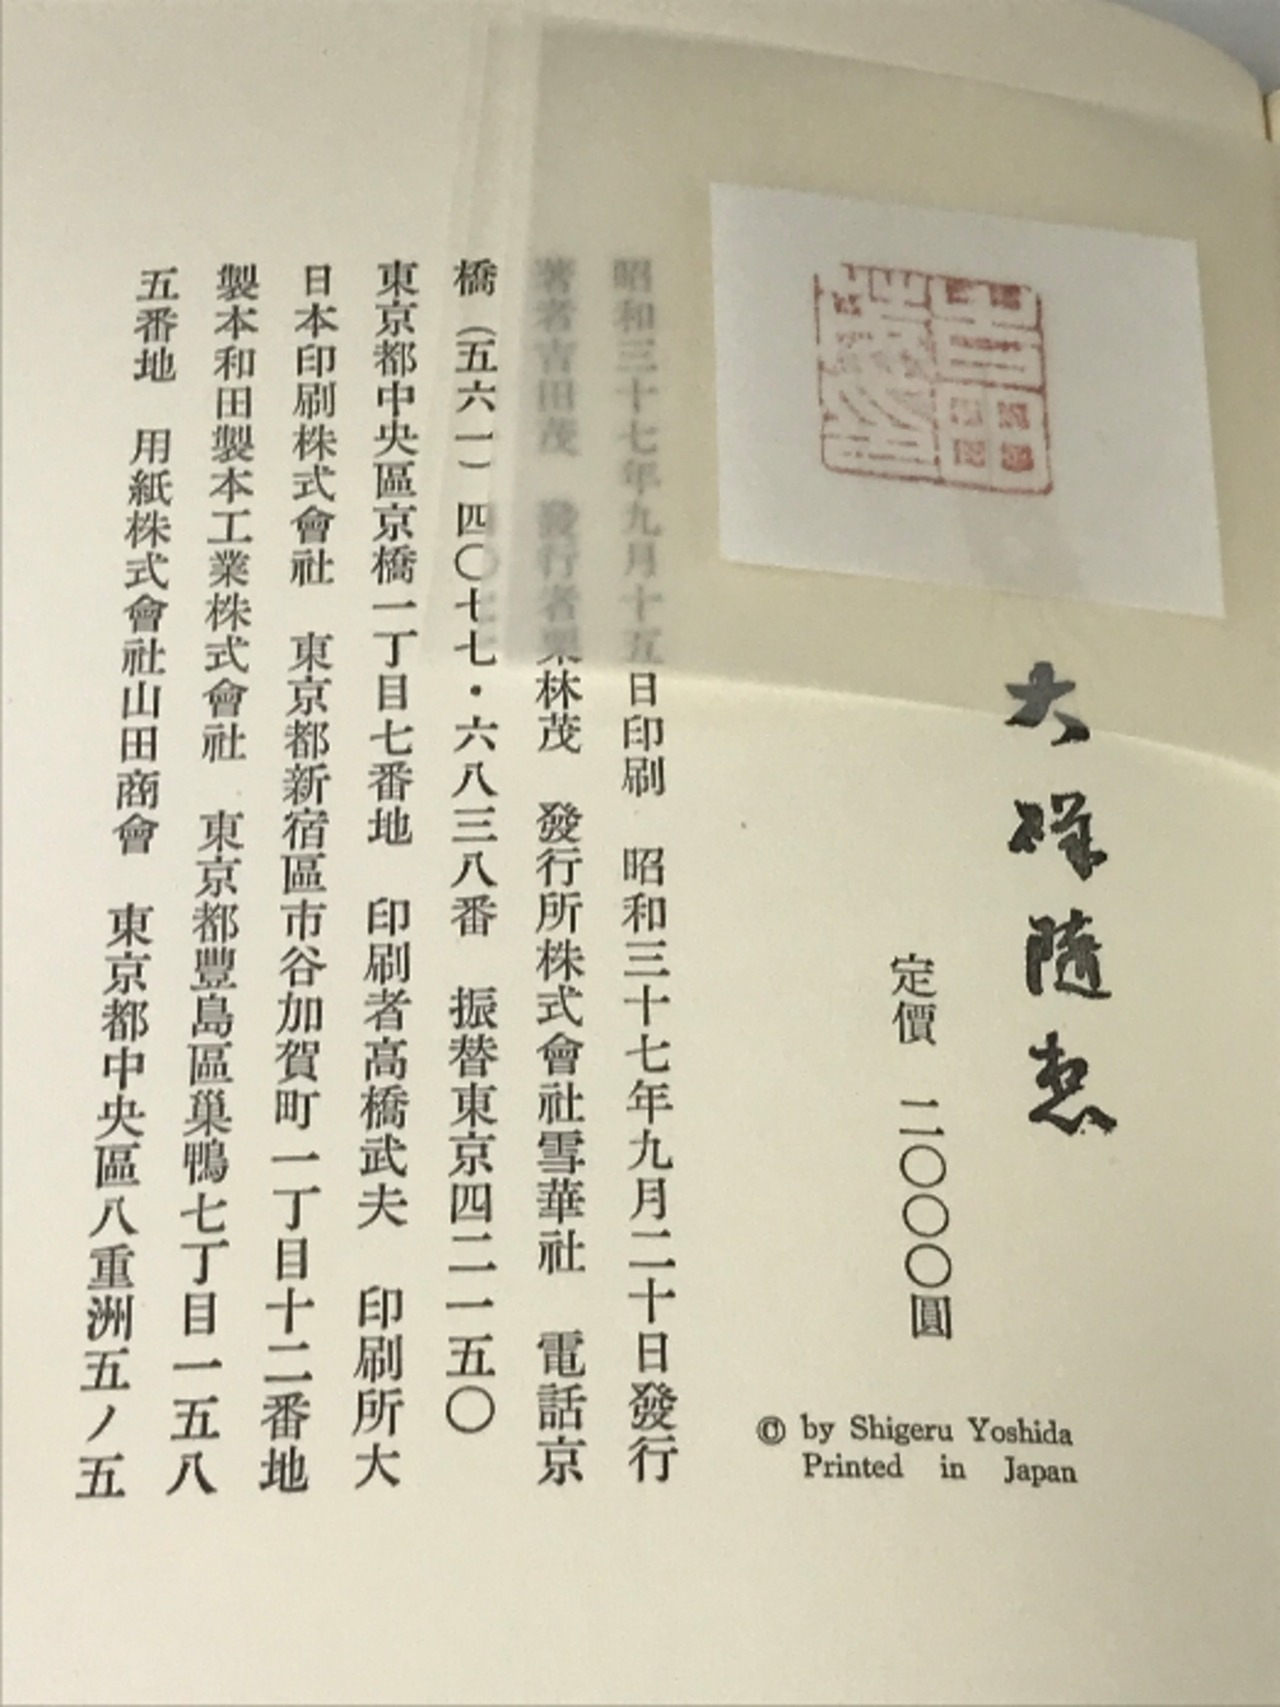 大磯随想
定價　二〇〇〇圓
© by Shigeru Yoshida
Printed in Japan
昭和三十七年九月十五日印刷　昭和三十七年九月二十日發行
著者吉田茂　發行者栗林茂　發行所株式會社雪華社　電話京
橋（五六一）四〇七七・六八三八番　振替東京四二一五〇
東京都中央區京橋一丁目七番地　印刷者高橋武夫　印刷所大
日本印刷株式會社　東京都新宿區市谷加賀町一丁目十二番地
製本和田製本工業株式會社　東京都豐島區巢鴨七丁目一五八
五番地　用紙株式會社山田商會　東京都中央區八重洲五ノ五